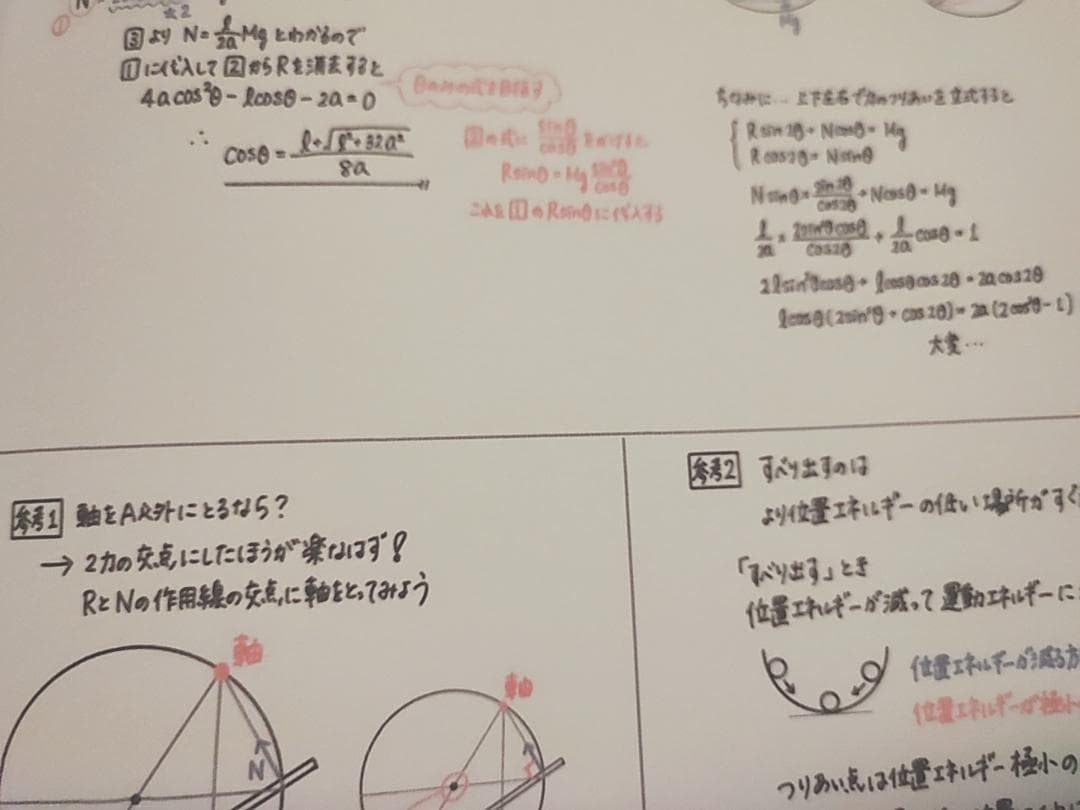 ☆2
①
Mg
③より N=l/2a Mgとわかるので
①に代入して②からRを消去すると
4acos²θ-lcosθ-2a=0
θのみの式を目指す
∴ cosθ=l+√l²+32a²/8a
②の式に sinθ/cosθ をかけると
Rsinθ=Mg sin²θ/cosθ
これを①のRsinθに代入する
ちなみに… 上下左右で力のつりあいを立式すると
Rsin2θ+Ncosθ=Mg
Rcos2θ=Nsinθ
Nsinθ×sin2θ/cos2θ+Ncosθ=Mg
l/2a×2sin²θcosθ/cos2θ+l/2a cosθ=1
2lsin²θcosθ+lcosθcos2θ=2acos2θ
lcosθ(2sin²θ+cos2θ)=2a(2cos²θ-1)
大変…
参考1 軸をA以外にとるなら?
→2力の交点にしたほうが楽なはず!
RとNの作用線の交点に軸をとってみよう
軸
N
軸
参考2 すべり出すのは
より位置エネルギーの低い場所がすぐ
「すべり出す」とき
位置エネルギーが減って運動エネルギーに
位置エネルギーが減る方
位置エネルギーが極小
つりあい点は位置エネルギー極小の